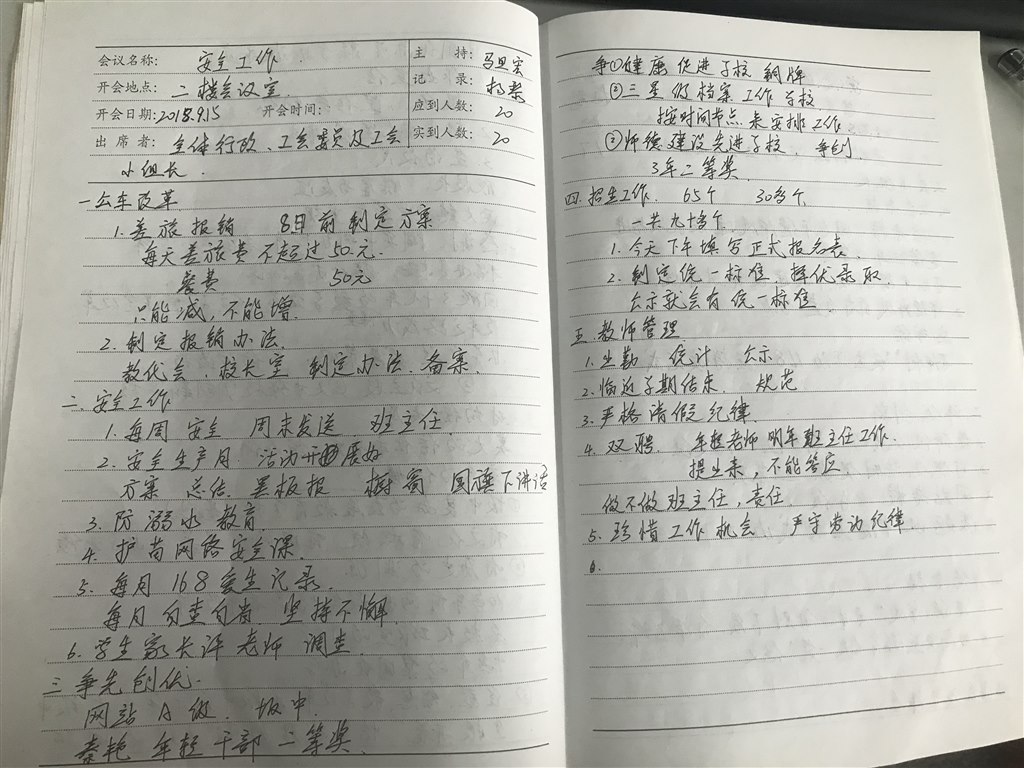 会议名称: 安全工作 主 持: 马旦宏
开会地点: 二楼会议室 记 录:
开会日期: 2018.9.15 开会时间: 应到人数: 20
出 席 者: 全体行政、工会委员及工会 实到人数: 20
小组长.
一公车改革
1. 差旅报销 8日前制定方案
每天差旅费不超过50元.
餐费 50元
只能减,不能增.
2. 制定报销办法.
教代会、校长室 制定办法、备案.
二、安全工作
1. 每周 安全 周末发送 班主任
2. 安全生产月 活动开展好
方案 总结 黑板报 橱窗 国旗下讲话
3. 防溺水教育
4. 护苗网络安全课.
5. 每月168安生记录
每月自查自省 坚持不懈.
6. 学生家长评老师 调查
三 争先创优.
网站A级.
秦艳 年轻干部二等奖.
争①健康促进学校 铜牌
②三星级档案工作学校
按时间节点来安排工作
③师德建设先进学校. 争创
3年二等奖
四. 招生工作. 65个 30多个
一共九十多个
1. 今天下午填写正式报名表.
2. 制定统一标准 择优录取
公示就会有统一标准.
五 教师管理
1. 出勤 统计 公示
2. 临近学期结束 规范
3. 严格请假纪律.
4. 双聘. 年轻老师明年班主任工作.
提出来,不能答应
做不做班主任,责任
5. 珍惜工作机会. 严守劳动纪律.
6.